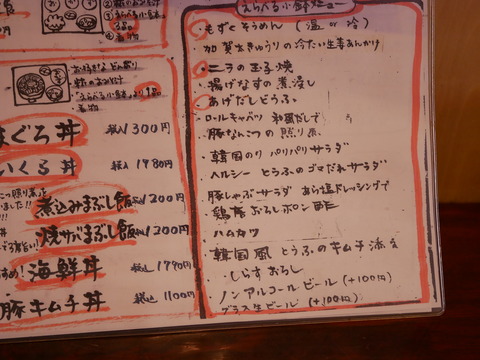 えらべる小鉢メニュー
・もずくそうめん (温 or 冷)
・加賀太きゅうりの冷たい生姜あんかけ
・ニラの玉子焼
・揚げなすの煮浸し
・あげだしとうふ
・ロールキャベツ 和風だしで
・豚なんこつの照り煮
・韓国のり パリパリサラダ
・ヘルシー とうふのゴマだれサラダ
・豚しゃぶサラダ あら塩ドレッシングで
・鶏むぶるしポン酢
・ハムカツ
・韓国風 とうふのキムチ添え
・しらすおろし
・ノンアルコールビール (+100円)
グラス生ビール (+100円)
・お好きな どんぶり
・えらべる小鉢 より1品
・香物
まぐろ丼 税込1300円
いくら丼 税込1980円
煮込みまぶし飯 税込1200円
焼サバまぶし飯 税込1200円
海鮮丼 税込1790円
豚キムチ丼 税込1100円